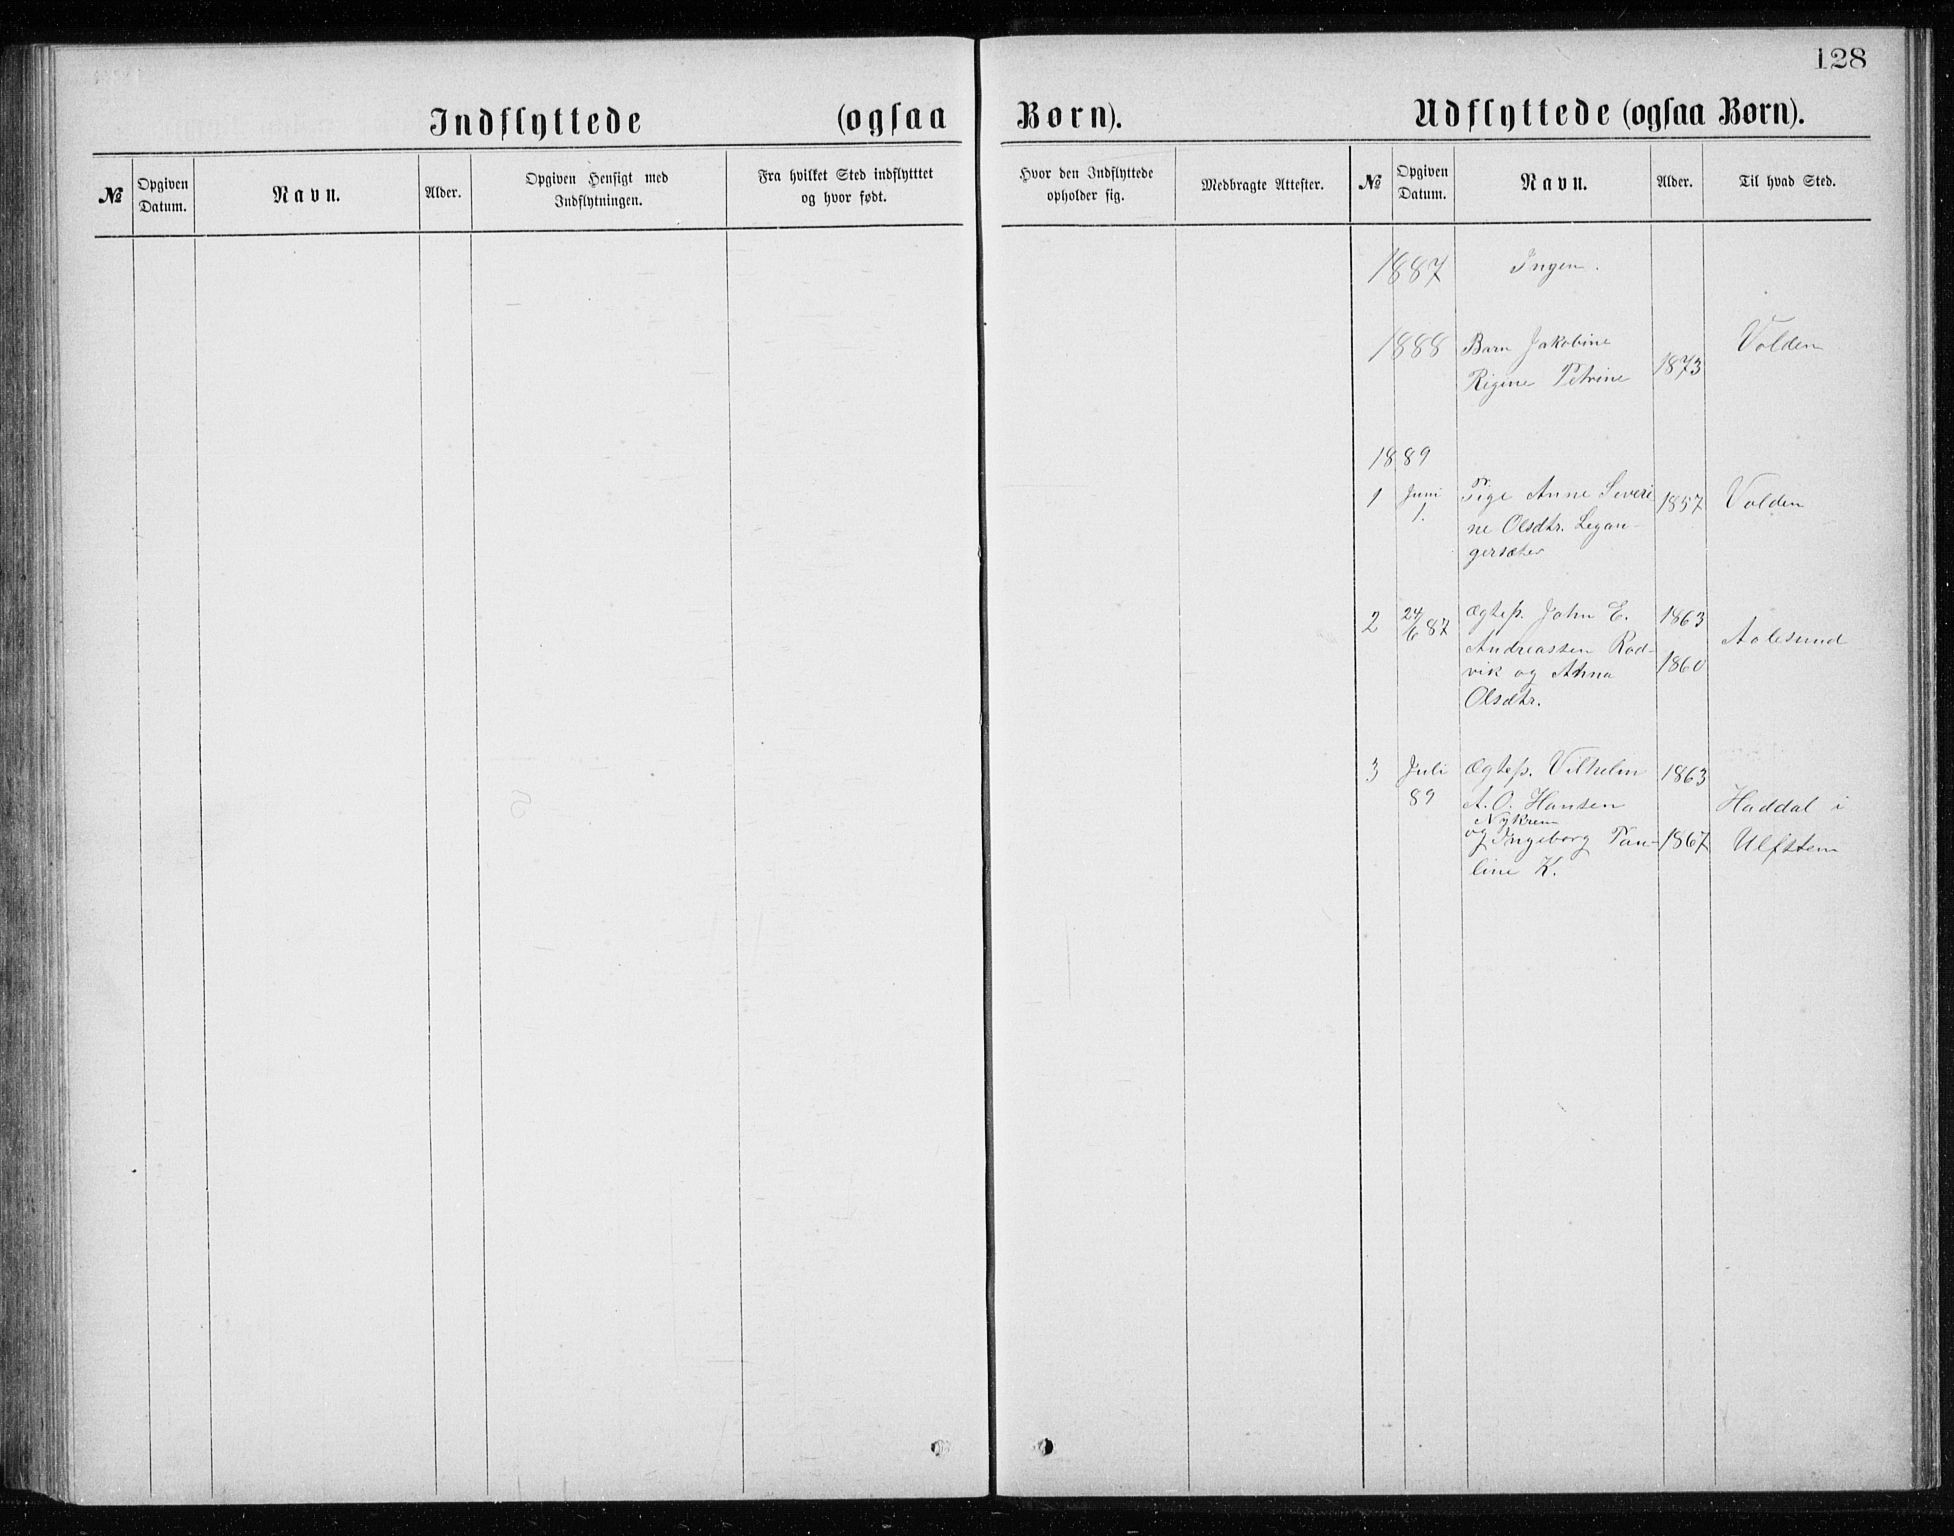 128
Indflyttede (ogsaa Børn).
Udflyttede (ogsaa Børn).
№
Opgiven Datum.
Navn.
Alder.
Opgiven Hensigt med
Indflytningen.
Fra hvilket Sted indflytttet
og hvor født.
Hvor den Indflyttede
opholder sig.
Medbragte Attester.
№
Opgiven Datum.
Navn.
Alder.
Til hvad Sted.
1887 Ingen.
1888 Barn Jakobine Volden
Rigine Petrine 1873
1889
1 Juni Pige Anne Severi 1857 Volden
1. ne Olsdtr. Legan-
gersæter
2 24/6 87 Ægtef. John E. 1863
Andreassen Rød- Aalesund
vik og Anna 1860
Olsdtr.
3 Juli Ægtef. Vilhelm 1863
89 A. O. Hansen Haddal i
Nykrem
og Ingeborg Pau- 1867 Ulfsten
line K.